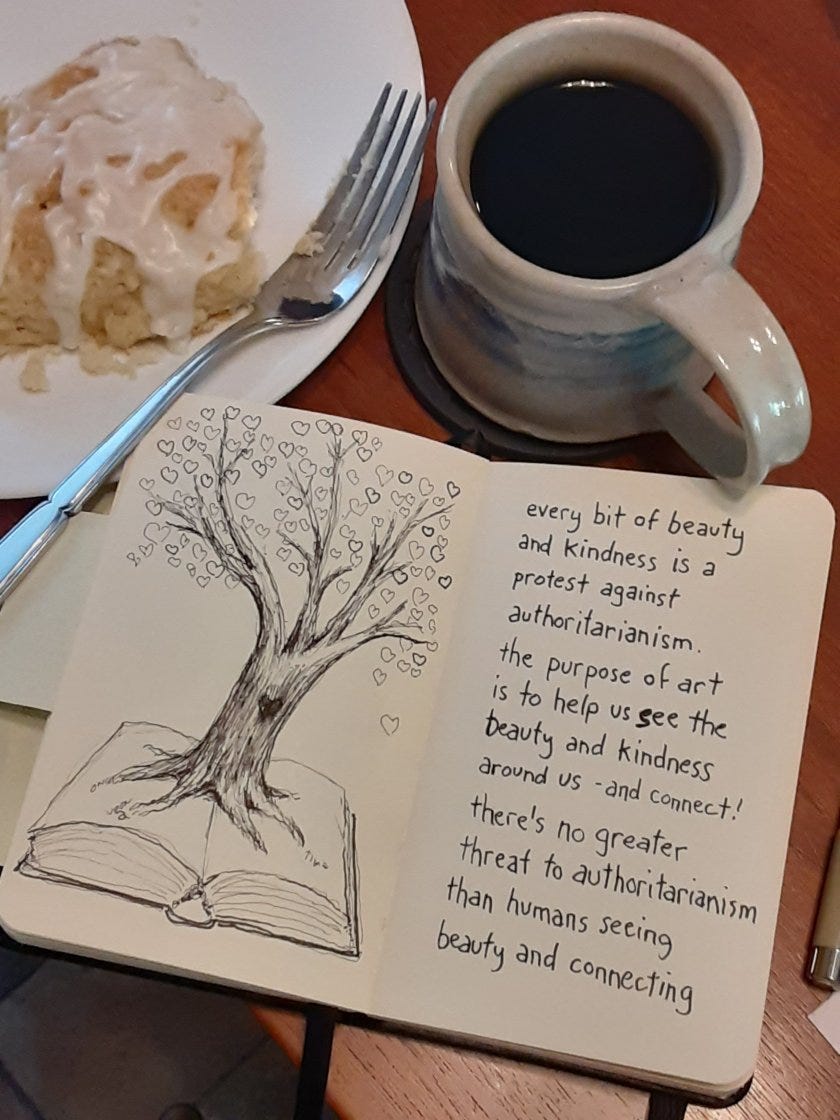 every bit of beauty
and kindness is a
protest against
authoritarianism.
the purpose of art
is to help us see the
beauty and kindness
around us - and connect!
there's no greater
threat to authoritarianism
than humans seeing
beauty and connecting
time